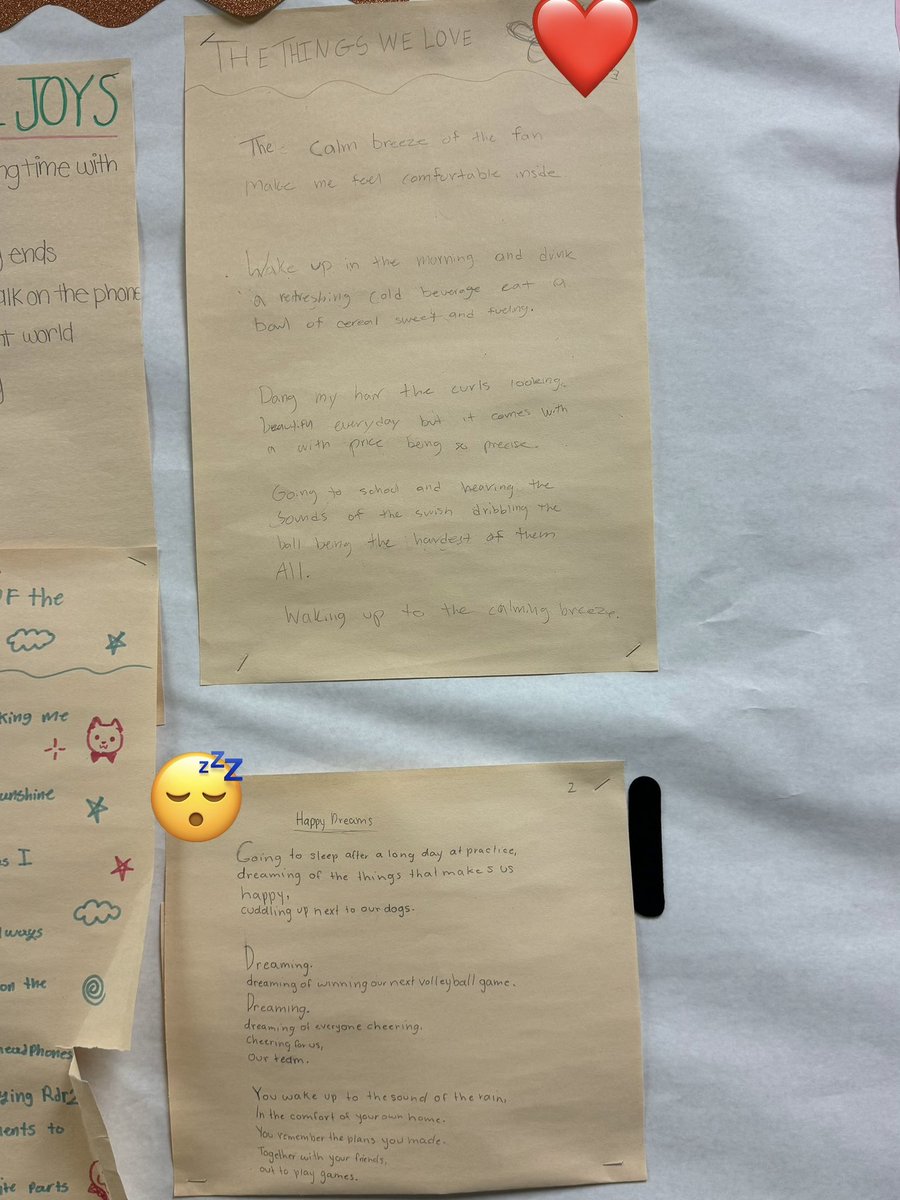 JOYS
ng time with
ends
alk on the phone
nt world
OF the
king me
unshine
s I
lways
on the
headphones
ying Rdr2
ents to
ite parts
THE THINGS WE LOVE
3
The calm breeze of the fan
make me feel comfortable inside
Wake up in the morning and drink
a refreshing cold beverage eat a
bowl of cereal sweet and fueling.
Dang my hair the curls looking
beautiful everyday but it comes with
a with price being so precise.
Going to school and hearing the
sounds of the swish dribbling the
ball being the hardest of them
All.
Waking up to the calming breeze.
2
Happy Dreams
Going to sleep after a long day at practice,
dreaming of the things that makes us
happy,
cuddling up next to our dogs.
Dreaming.
dreaming of winning our next volleyball game.
Dreaming.
dreaming of everyone cheering.
Cheering for us,
Our team.
You wake up to the sound of the rain,
In the comfort of your own home.
You remember the plans you made.
Together with your friends,
out to play games.